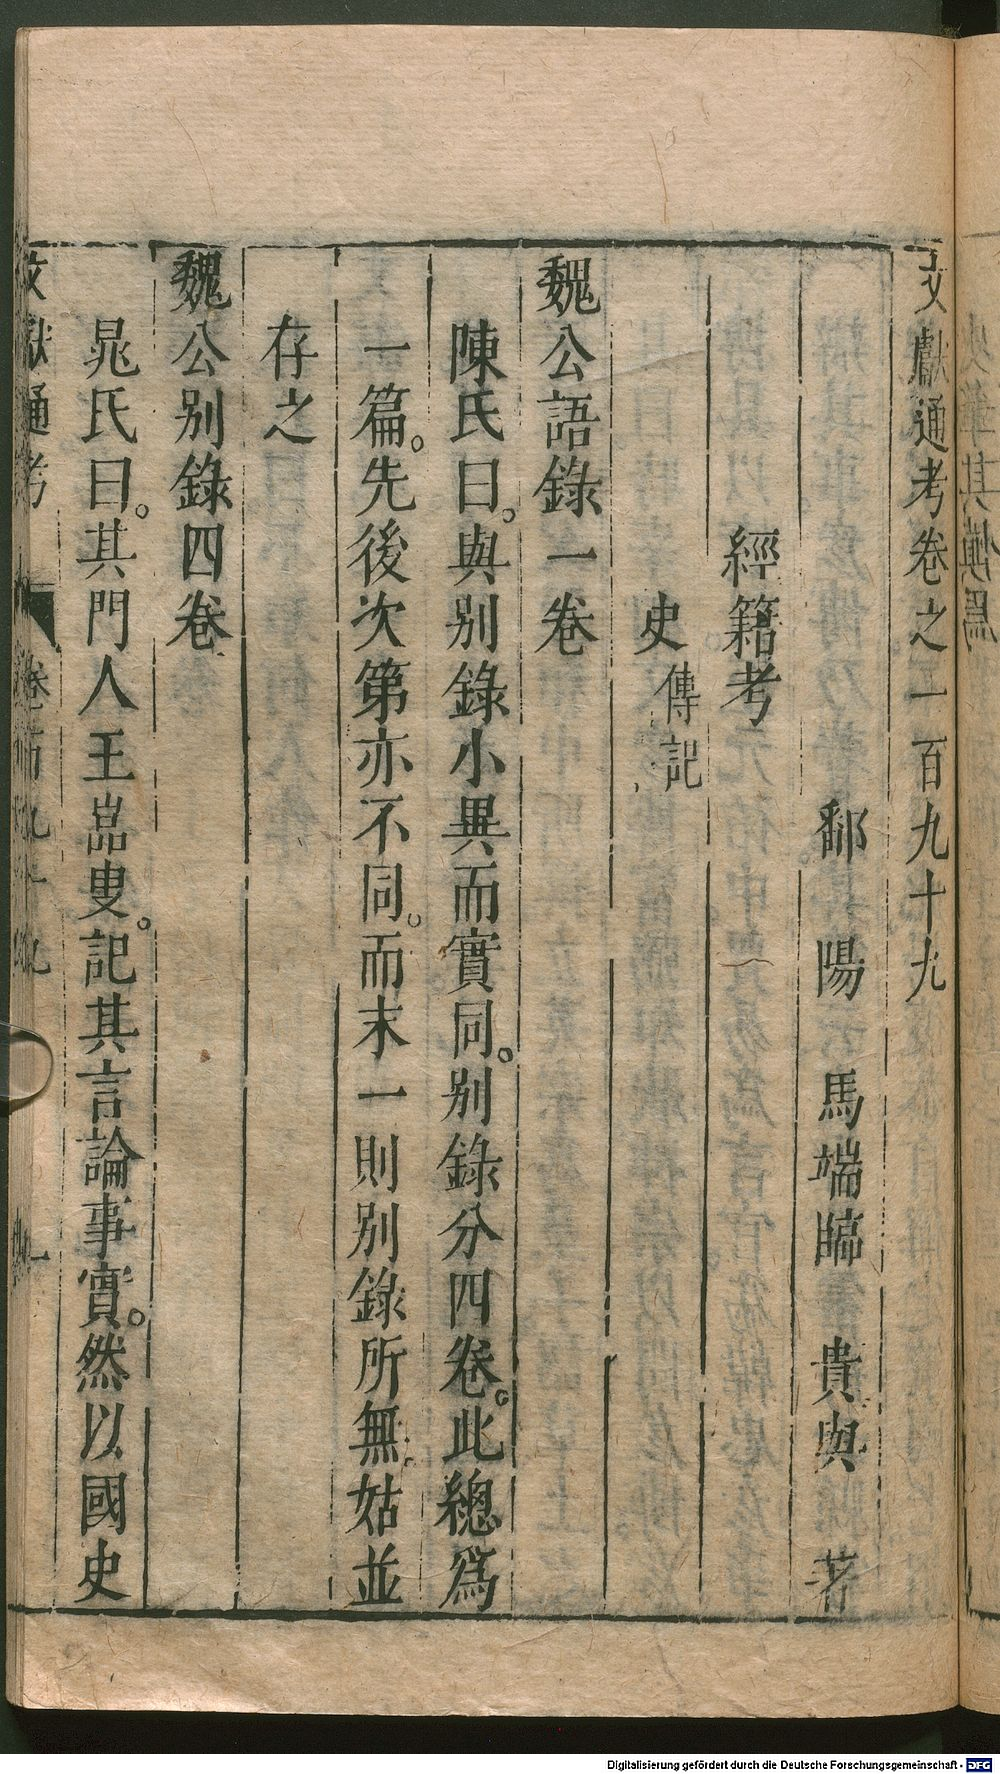 文獻通考卷之一百九十九
鄱陽馬端臨貴與著
經籍考
史傳記
魏公語錄一卷
陳氏曰。與别錄小異而實同。别錄分四卷。此總爲
一篇。先後次第亦不同。而末一則别錄所無姑並
存之
魏公别錄四卷
晁氏曰。其門人王嵓叟。記其言論事實。然以國史
文獻通考
卷百九十九
一
Digitalisierung gefördert durch die Deutsche Forschungsgemeinschaft - DFG